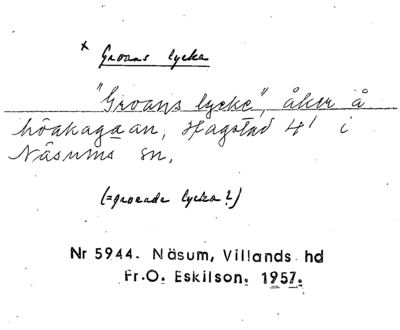 x Groans lycka
"Groans lycke", åker å
högkagaan, Hagstad 4¹ i
Näsums sn.
(=groende lycka?)
Nr 5944. Näsum, Villands hd
Fr.O. Eskilson. 1957.